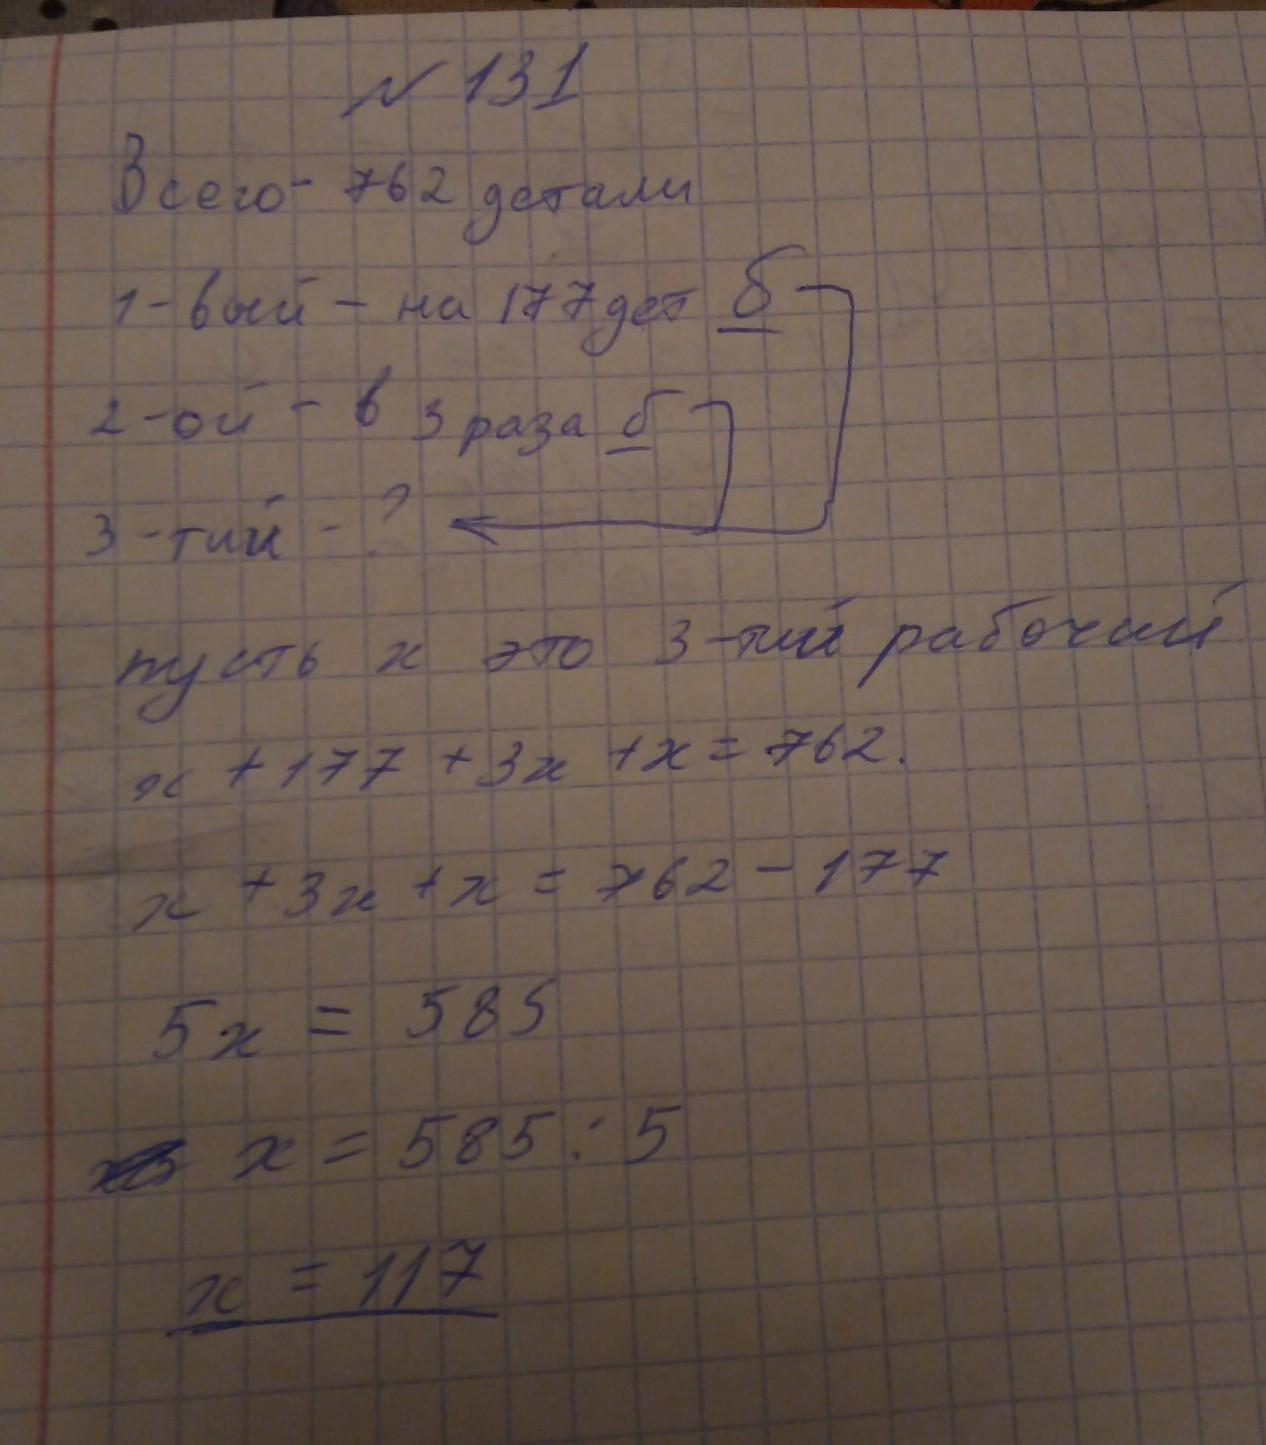 № 131
Всего - 762 детали
1-вый - на 177 дет б
2-ой - в 3 раза б
3-тий - ?
пусть x это 3-тий рабочий
x + 177 + 3x + x = 762.
x + 3x + x = 762 - 177
5x = 585
x = 585 : 5
x = 117